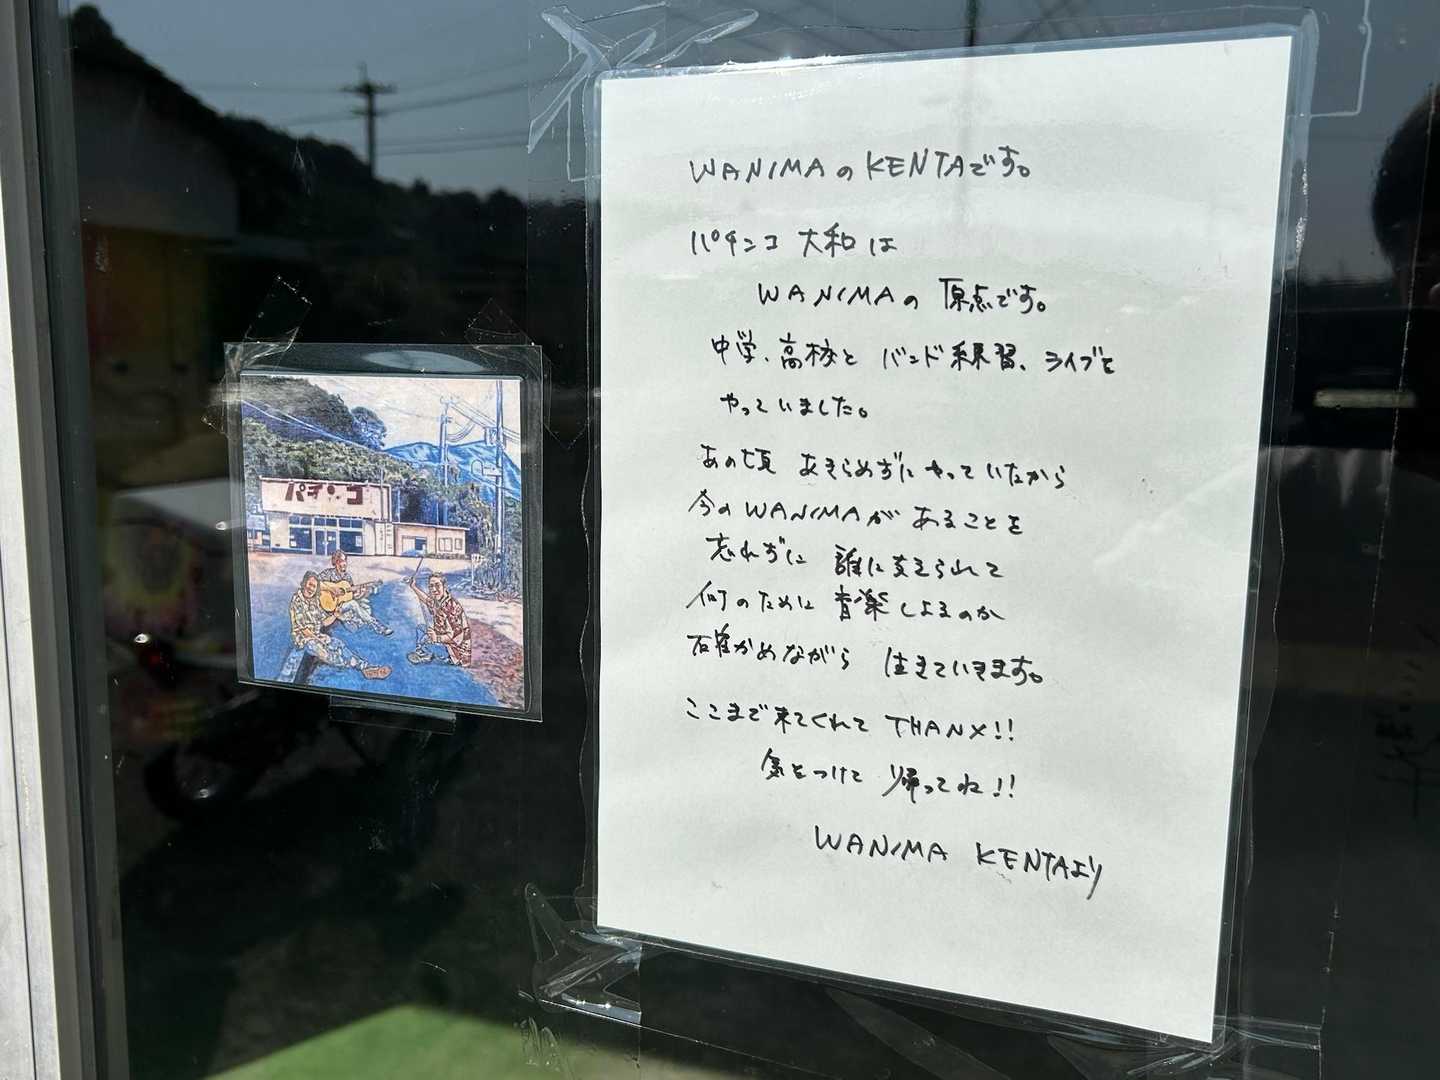 WANIMAの KENTAです。
パチンコ 大和 は
WANIMAの 原点です。
中学、高校と バンド練習、ライブを
やっていました。
あの頃 あきらめずに やっていたから
今のWANIMAが あることを
忘れずに 誰に支えられて
何のために 音楽しよるのか
確かめながら 生きていきます。
ここまで来てくれて THANX!!
気をつけて 帰ってね!!
WANIMA KENTAより
パチンコ